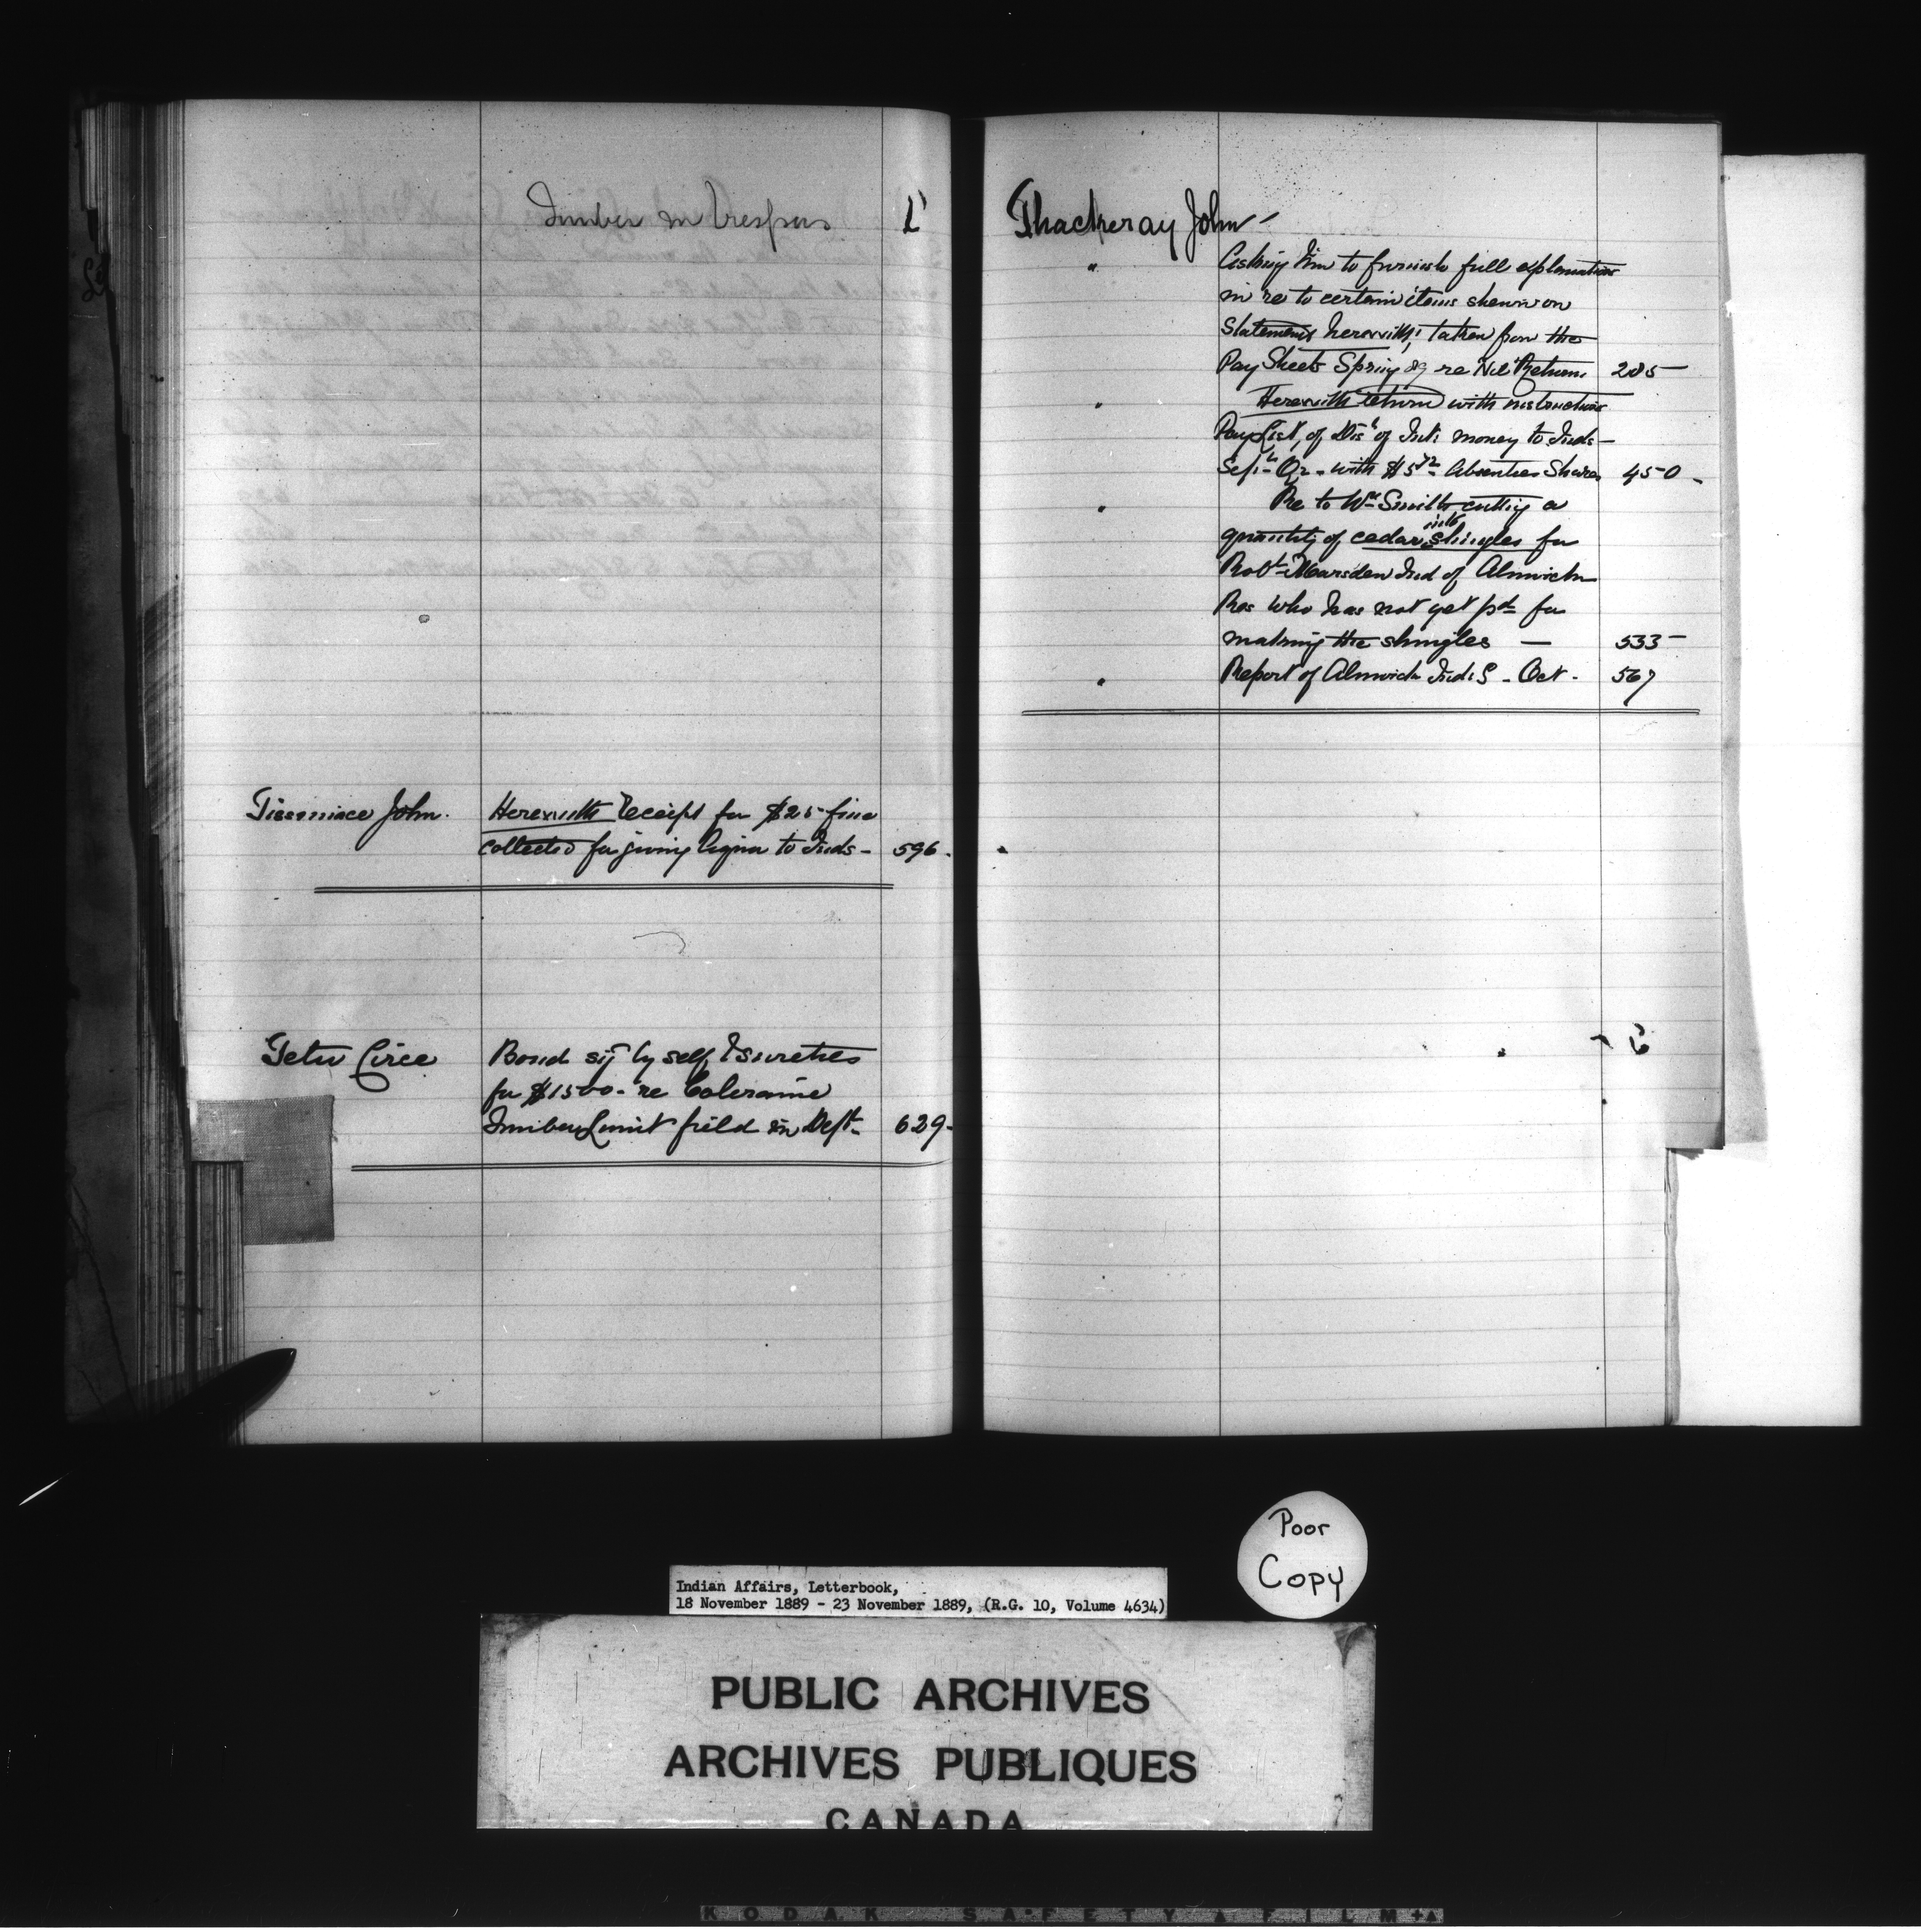 Timber in Trespass
Tiesmiace John. Herewith Receipt for $25 fine
collected for giving liquor to Inds - 596.
Tetu Circe Bond sig by self & sureties
for $1500 - re Coleraine
Timber Limit field in Dept. 629-
Thackeray John
" Asking him to furnish full explanation
in re to certain items shewn on
statements herewith, taken from the
Pay Sheets Spring 89 re Nil Returns 285-
" Herewith return with instructions
Pay List, of Dis^n of Int: money to Inds -
Sep^t Qr - with $5 72 Absentees Shares 450 -
" Re to W^m Smith cutting a
quantity of cedar into shingles for
Rob^t Marsden Ind of Alnwick
Res who has not yet p^d for
making the shingles — 533-
" Report of Alnwick Ind: S - Oct - 567
Poor
Copy
Indian Affairs, Letterbook,
18 November 1889 - 23 November 1889, (R.G. 10, Volume 4634)
PUBLIC ARCHIVES
ARCHIVES PUBLIQUES
CANADA
KODAK SAFETY FILM